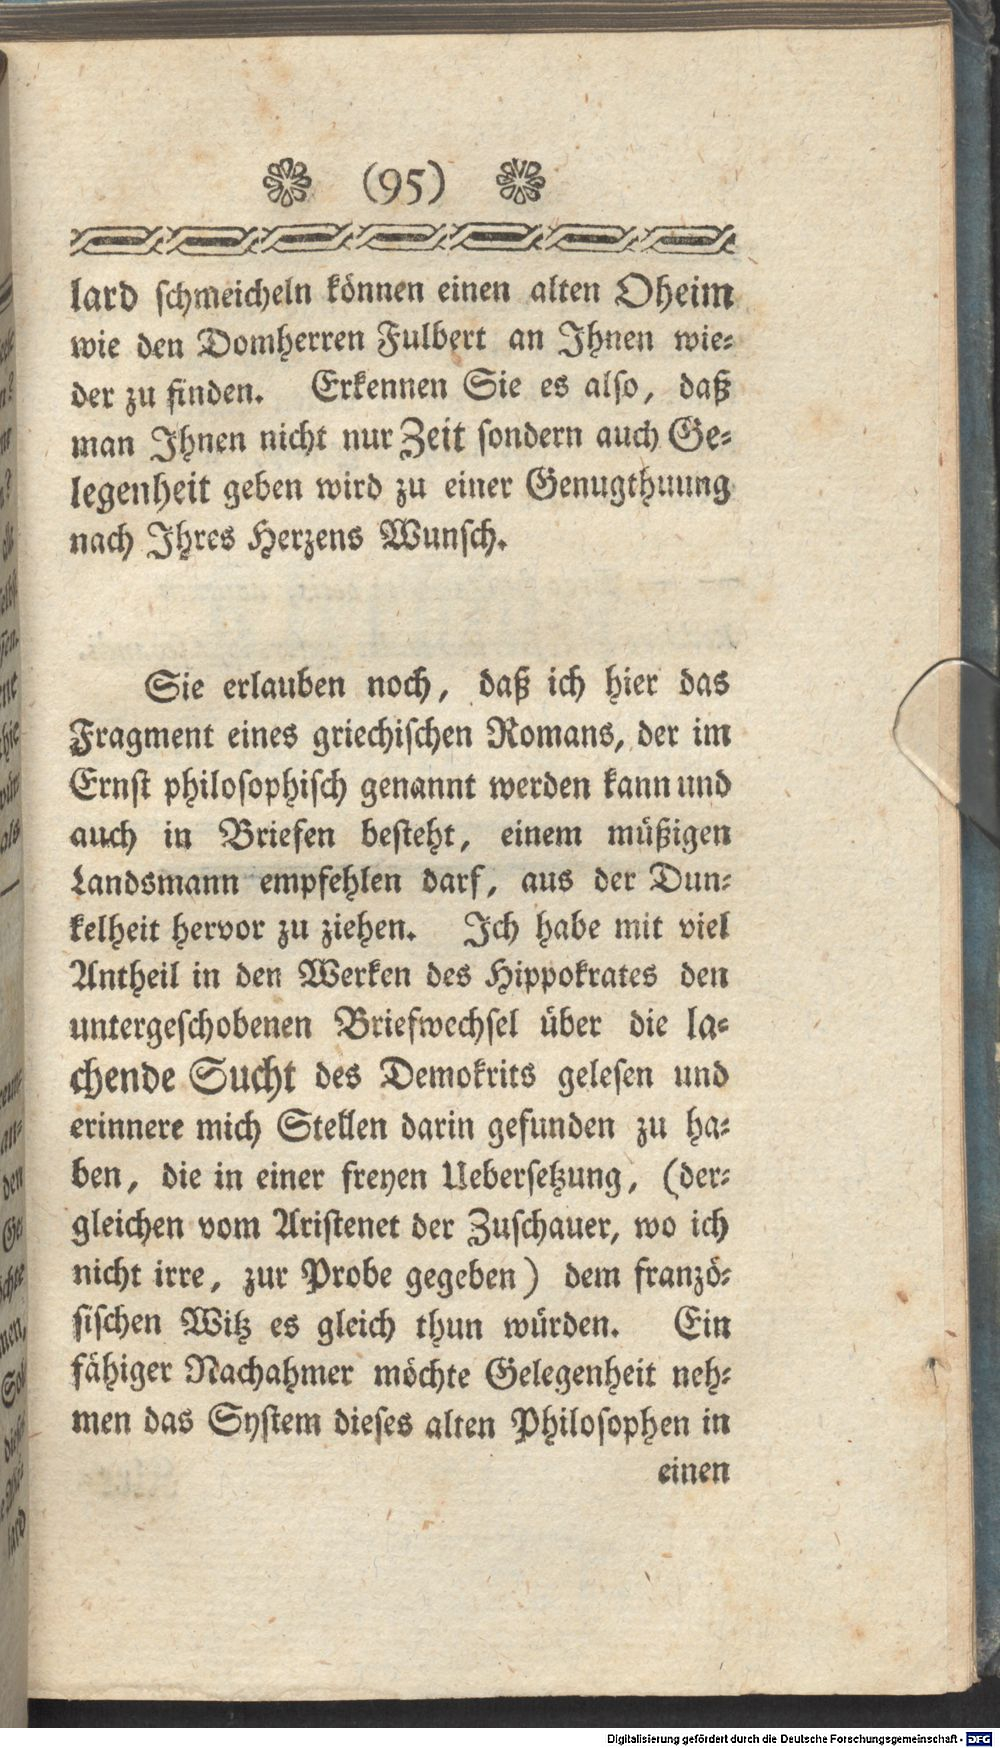 (95)
lard schmeicheln können einen alten Oheim
wie den Domherren Fulbert an Ihnen wie⸗
der zu finden. Erkennen Sie es also, daß
man Ihnen nicht nur Zeit sondern auch Ge⸗
legenheit geben wird zu einer Genugthuung
nach Ihres Herzens Wunsch.
Sie erlauben noch, daß ich hier das
Fragment eines griechischen Romans, der im
Ernst philosophisch genannt werden kann und
auch in Briefen besteht, einem müßigen
Landsmann empfehlen darf, aus der Dun⸗
kelheit hervor zu ziehen. Ich habe mit viel
Antheil in den Werken des Hippokrates den
untergeschobenen Briefwechsel über die la⸗
chende Sucht des Demokrits gelesen und
erinnere mich Stellen darin gefunden zu ha⸗
ben, die in einer freyen Uebersetzung, (der⸗
gleichen vom Aristenet der Zuschauer, wo ich
nicht irre, zur Probe gegeben) dem franzö⸗
sischen Witz es gleich thun würden. Ein
fähiger Nachahmer möchte Gelegenheit neh⸗
men das System dieses alten Philosophen in
einen
Digitalisierung gefördert durch die Deutsche Forschungsgemeinschaft - DFG